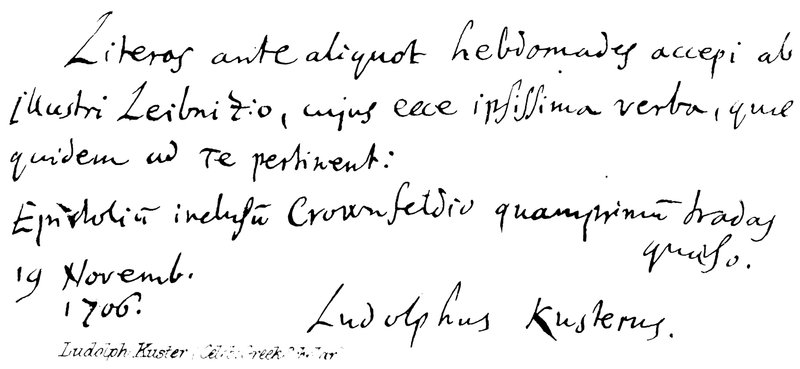 Literas ante aliquot hebdomades accepi ab
illustri Leibnizio, cujus ecce ipsissima verba, quae
quidem ad Te pertinent:
Epistoliū inclusū Crownfeldio quamprimū tradas
quaeso.
19 Novemb.
1706.
Ludolphus Kusterus.
Ludolph Kuster Greek